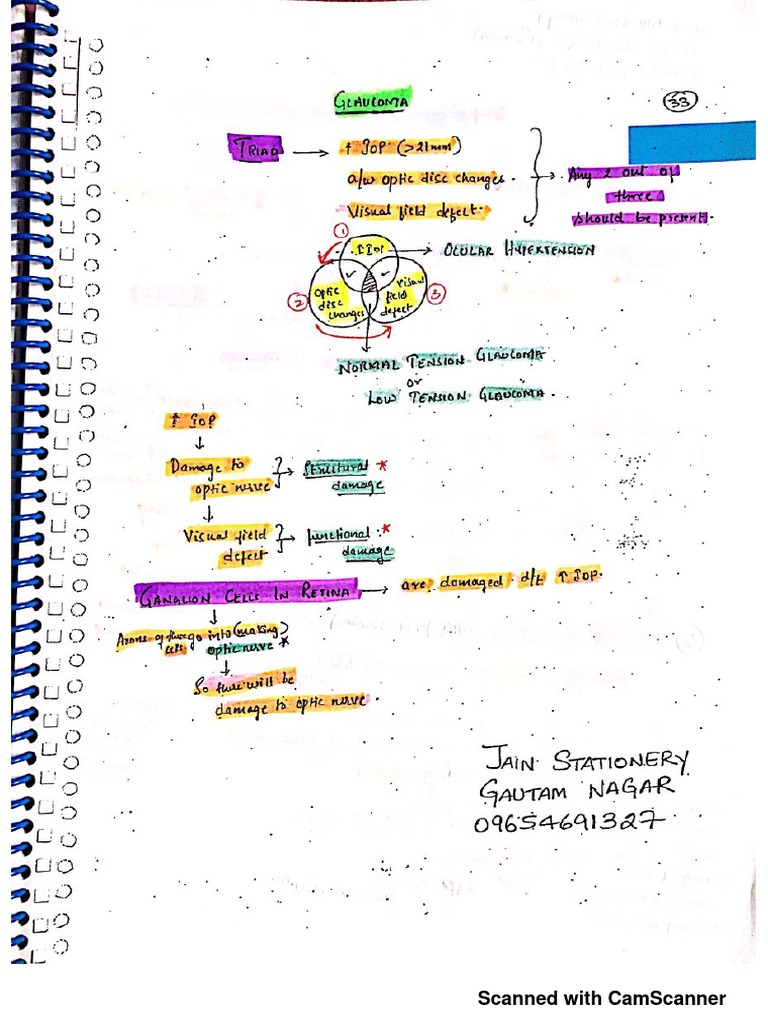 GLAUCOMA
33
TRIAD → ↑ IOP (>21mm)
a/w optic disc changes.
Visual field defect.
→ Any 2 out of
three
should be present.
1
↑IOP → OCULAR HYPERTENSION
2
Optic
disc
changes
Visual
field
defect
3
NORMAL TENSION GLAUCOMA
or
LOW TENSION GLAUCOMA.
↑ IOP
↓
Damage to
optic nerve → Structural *
damage
↓
Visual field
defect → functional *
damage
GANGLION CELLS IN RETINA → are damaged d/t ↑ IOP.
↓
Axons of these go into (making)
cells optic nerve *
↓
So there will be
damage to optic nerve.
JAIN STATIONERY
GAUTAM NAGAR
09654691327
Scanned with CamScanner